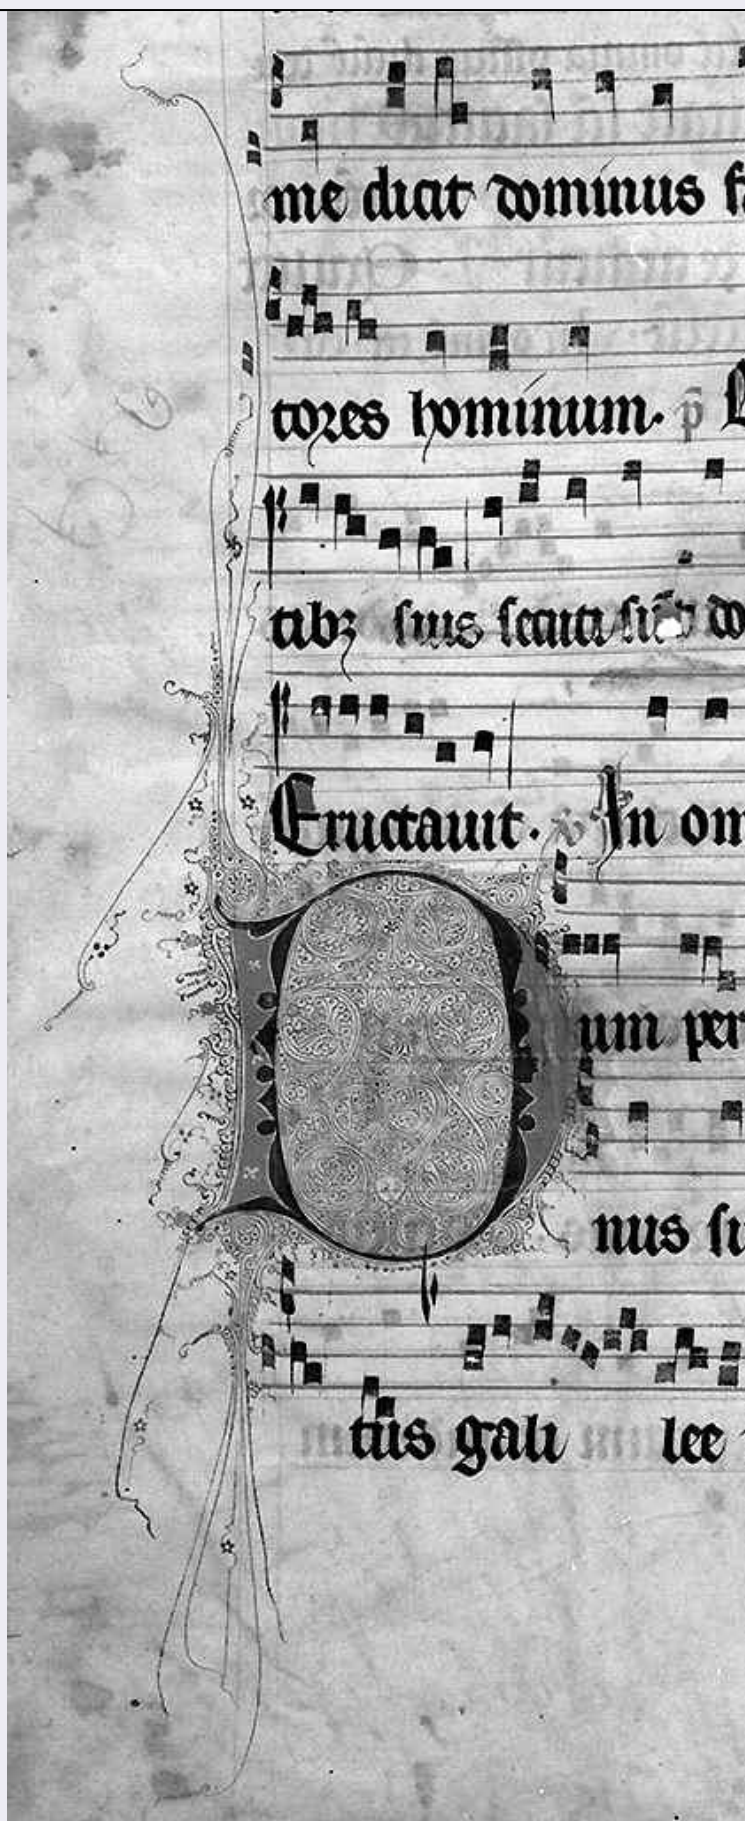 me dicit dominus fa
tores hominum. p̄
tibꝫ suis secuti sūt do
Eructauit. ℣ In om
Dum per
nus su
tus gali lee